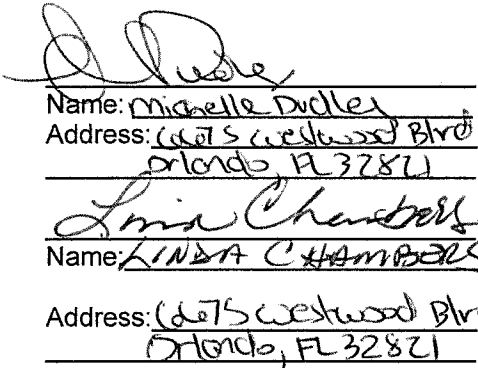 Name: Michelle Dudley
Address: 6675 Westwood Blvd
Orlando, FL 32821
Linda Chambers
Name: LINDA CHAMBERS
Address: 6675 Westwood Blv
Orlando, FL 32821